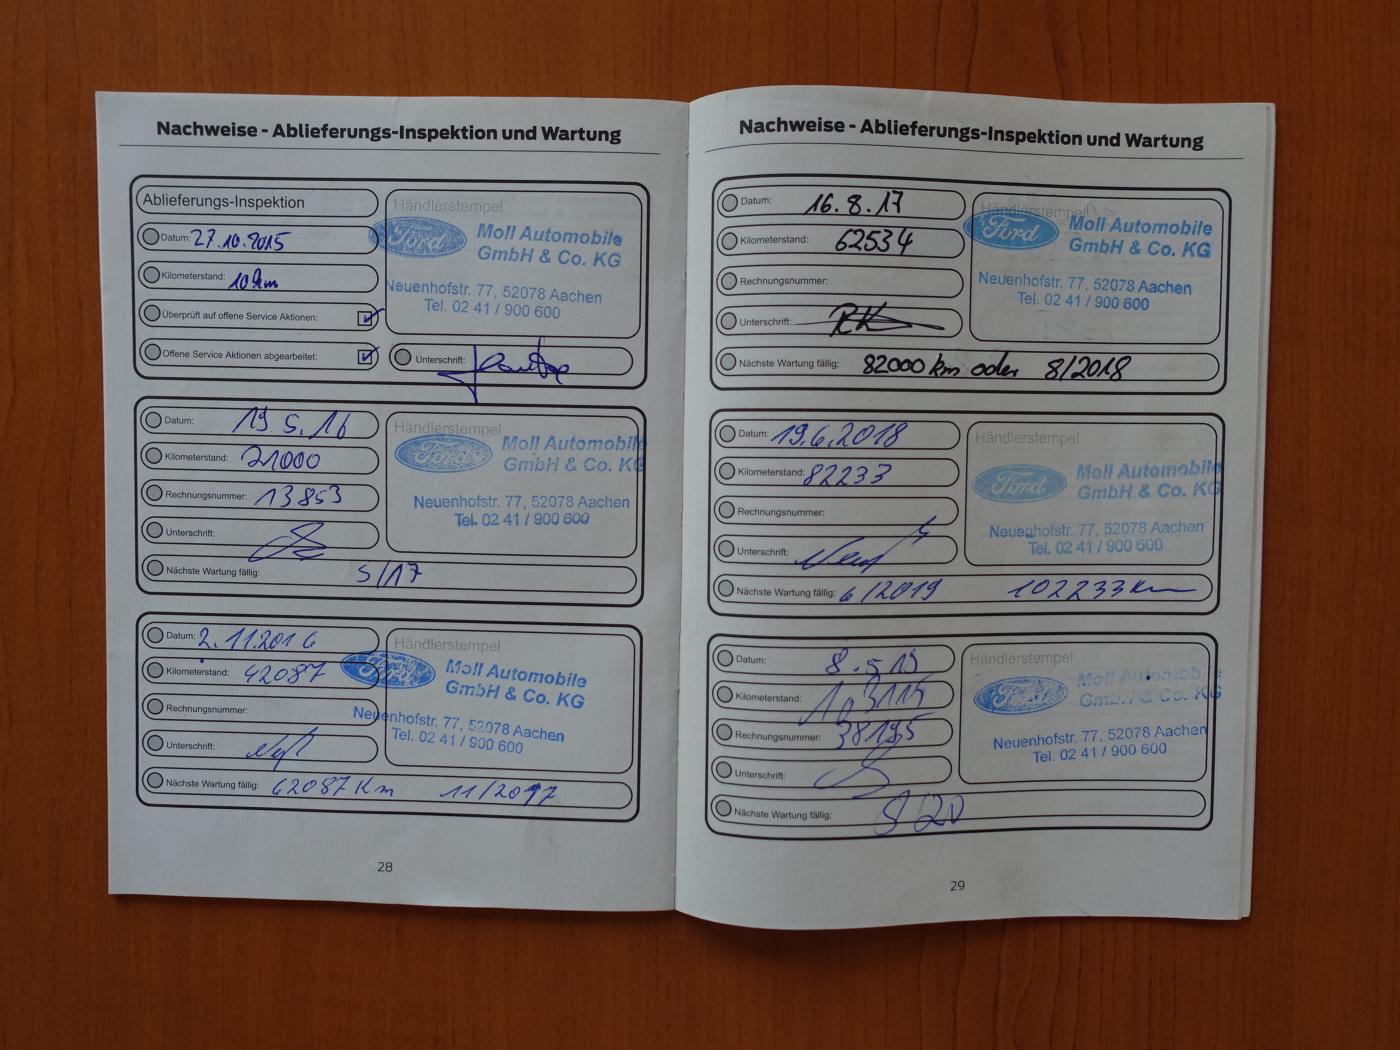 Nachweise - Ablieferungs-Inspektion und Wartung
Ablieferungs-Inspektion
Händlerstempel
Datum: 27.10.2015
Ford
Moll Automobile
GmbH & Co. KG
Kilometerstand: 10 km
Neuenhofstr. 77, 52078 Aachen
Tel. 02 41 / 900 600
Überprüft auf offene Service Aktionen:
Offene Service Aktionen abgearbeitet:
Unterschrift:
Datum: 19.5.16
Händlerstempel
Ford
Moll Automobile
GmbH & Co. KG
Kilometerstand: 21000
Rechnungsnummer: 13853
Neuenhofstr. 77, 52078 Aachen
Tel. 02 41 / 900 600
Unterschrift:
Nächste Wartung fällig: 5/17
Datum: 2.11.2016
Händlerstempel
Ford
Moll Automobile
GmbH & Co. KG
Kilometerstand: 42087
Rechnungsnummer:
Neuenhofstr. 77, 52078 Aachen
Tel. 02 41 / 900 600
Unterschrift:
Nächste Wartung fällig: 62087 Km 11/2017
28
Nachweise - Ablieferungs-Inspektion und Wartung
Datum: 16.8.17
Händlerstempel
Ford
Moll Automobile
GmbH & Co. KG
Kilometerstand: 62534
Rechnungsnummer:
Neuenhofstr. 77, 52078 Aachen
Tel. 02 41 / 900 600
Unterschrift: RK
Nächste Wartung fällig: 82000 km oder 8/2018
Datum: 19.6.2018
Händlerstempel
Ford
Moll Automobile
GmbH & Co. KG
Kilometerstand: 82233
Rechnungsnummer:
Neuenhofstr. 77, 52078 Aachen
Tel. 02 41 / 900 600
Unterschrift:
Nächste Wartung fällig: 6/2019 102233 km
Datum: 8.5.19
Händlerstempel
Ford
Moll Automobile
GmbH & Co. KG
Kilometerstand:
Rechnungsnummer: 38195
Neuenhofstr. 77, 52078 Aachen
Tel. 02 41 / 900 600
Unterschrift:
Nächste Wartung fällig:
29